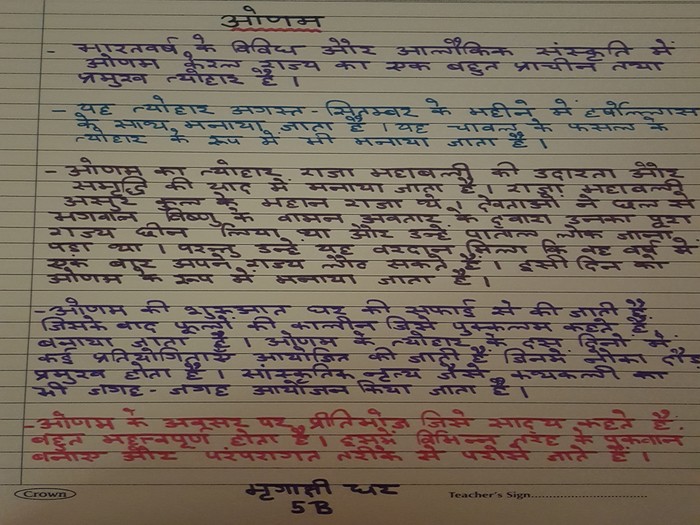 ओणम
- भारतवर्ष के विविध और आलौकिक संस्कृति में
ओणम केरल राज्य का एक बहुत प्राचीन तथा
प्रमुख त्योहार है ।
- यह त्योहार अगस्त - सितम्बर के महीने में हर्षोल्लास
के साथ मनाया जाता है । यह चावल के फसल के
त्योहार के रूप में भी मनाया जाता है ।
- ओणम का त्योहार राजा महाबली की उदारता और
समृद्धि की याद में मनाया जाता है । राजा महाबली
असुर कुल के महान राजा थे । देवताओं ने छल से
भगवान विष्णु के वामन अवतार के द्वारा उनका पूरा
राज्य छीन लिया था और उन्हें पाताल लोक जाना
पड़ा था । परन्तु उन्हें यह वरदान मिला कि वह वर्ष में
एक बार अपने राज्य लौट सकते हैं । इसी दिन को
ओणम के रूप में मनाया जाता है ।
- ओणम की शुरुआत घर की सफाई से की जाती है
जिसके बाद फूलों की कालीन जिसे पुक्कलम कहते हैं
बनाया जाता है । ओणम के त्योहार के दस दिनों में
कई प्रतियोगिताएँ आयोजित की जाती हैं जिनमें नौका दौड़
प्रमुख होता है । सांस्कृतिक नृत्य जैसे कथकली का
भी जगह - जगह आयोजन किया जाता है ।
- ओणम के अवसर पर प्रीतिभोज जिसे साद्य कहते हैं
बहुत महत्वपूर्ण होता है । इसमें विभिन्न तरह के पकवान
बनाए और परंपरागत तरीके से परोसे जाते हैं ।
Crown
Teacher's Sign
मृगाक्षी धर
5B